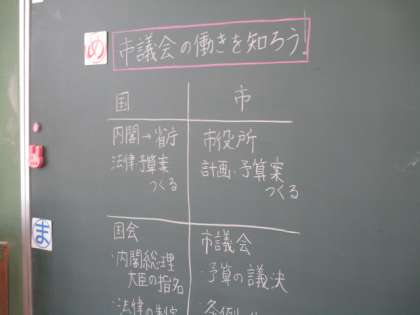 め
市議会の働きを知ろう!
国
市
内閣→省庁
法律・予算案
つくる
市役所
計画・予算案
つくる
ま
国会
・内閣総理
大臣の指名
・法律の制定
市議会
・予算の議決